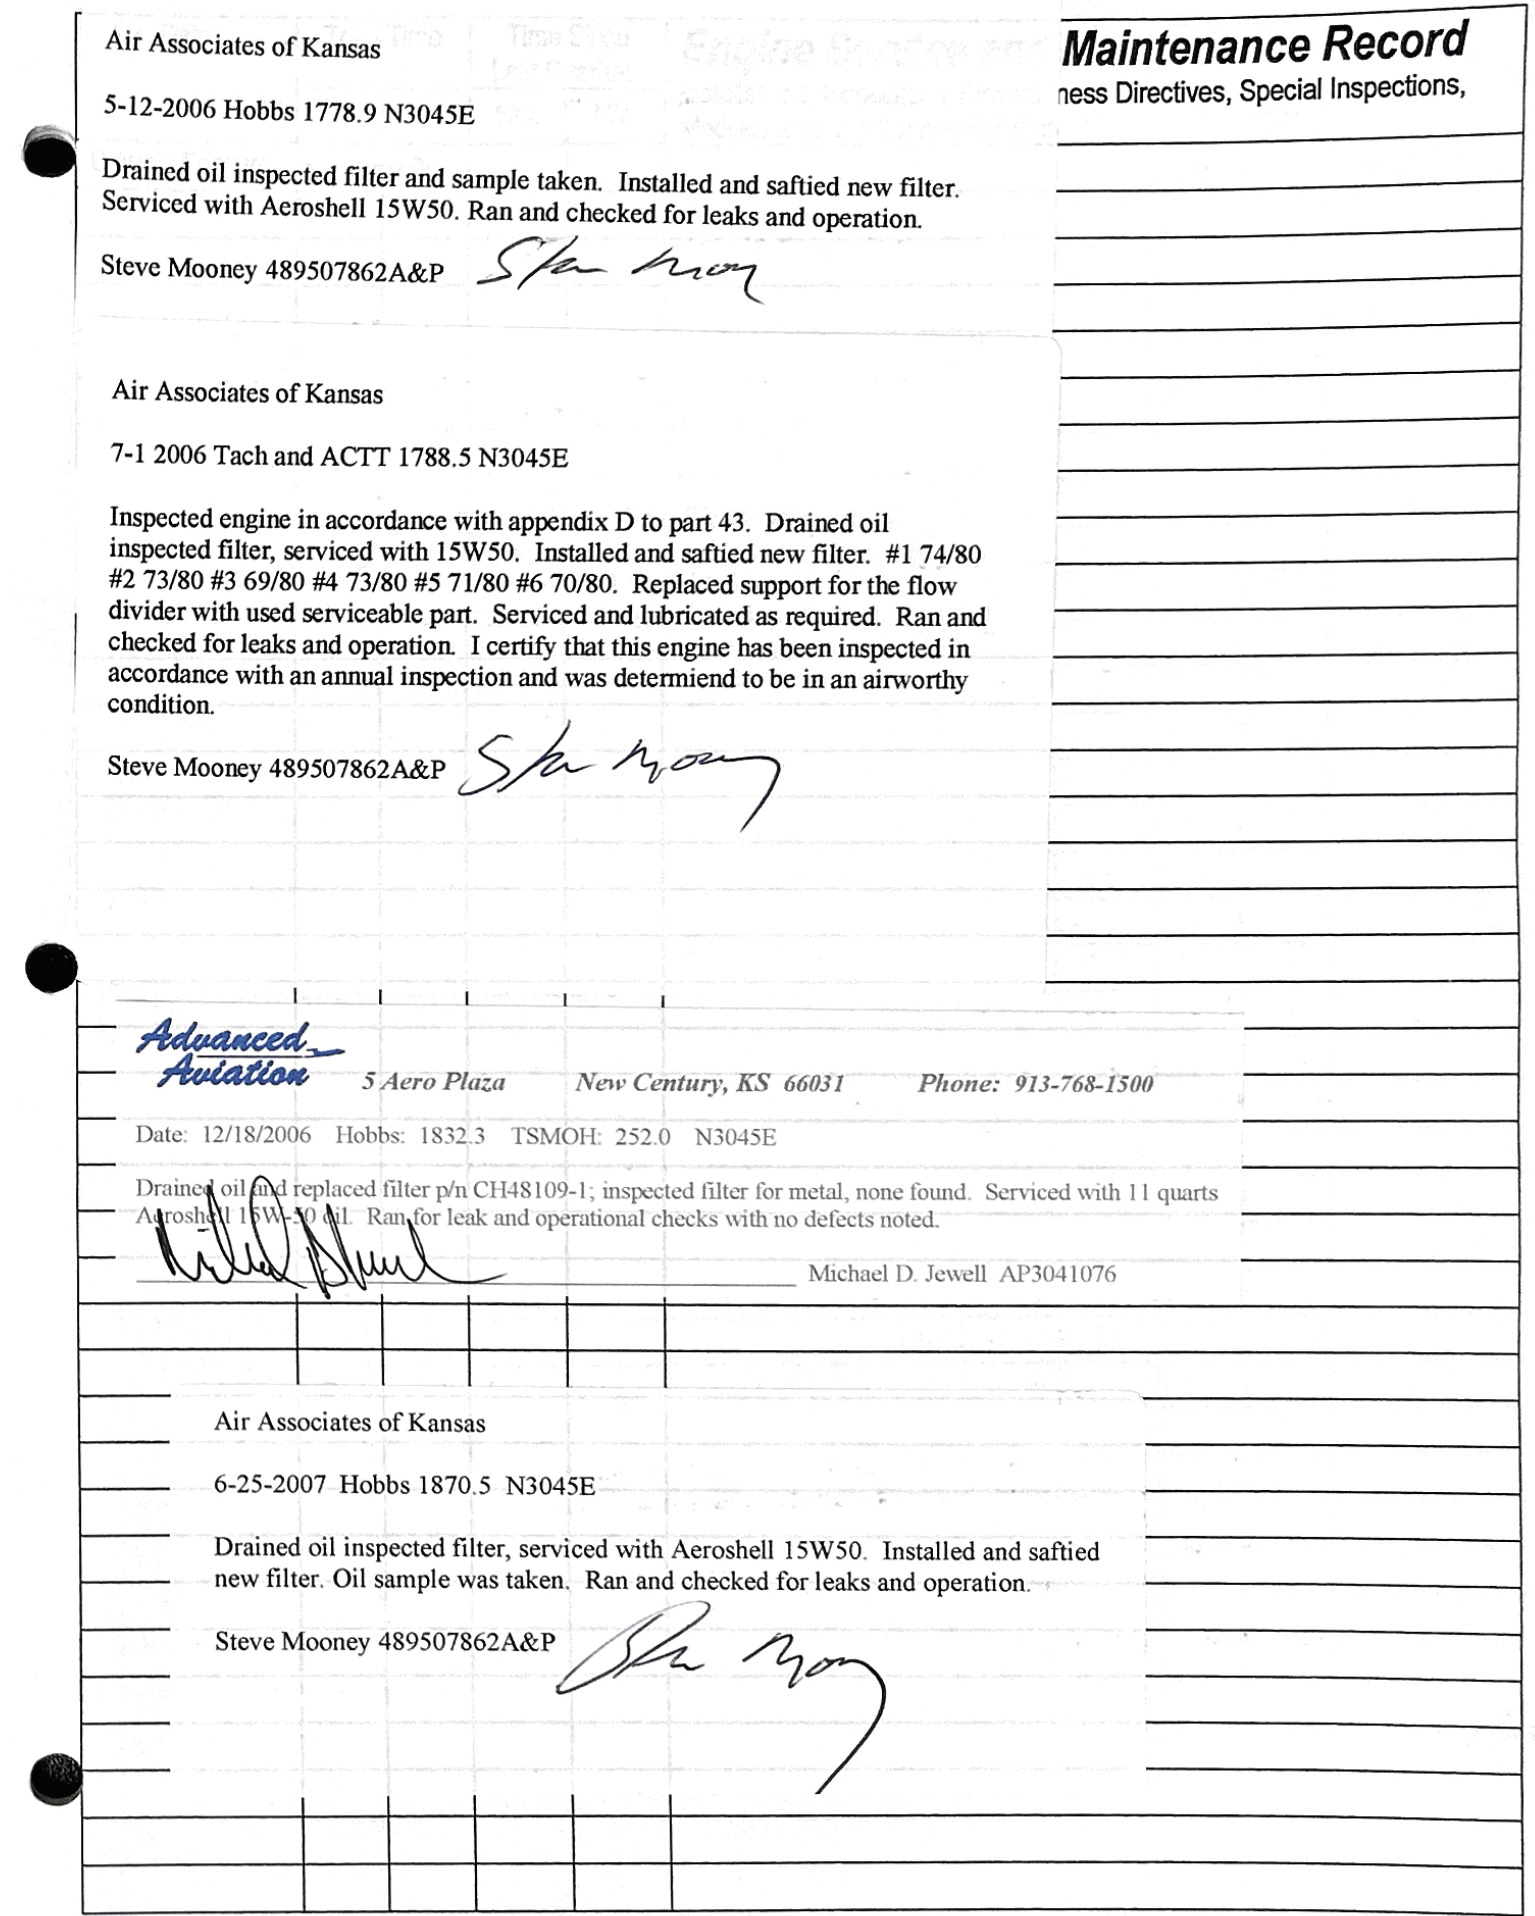 Maintenance Record
ness Directives, Special Inspections,
Air Associates of Kansas
5-12-2006 Hobbs 1778.9 N3045E
Drained oil inspected filter and sample taken.  Installed and saftied new filter.
Serviced with Aeroshell 15W50. Ran and checked for leaks and operation.
Steve Mooney 489507862A&P
Air Associates of Kansas
7-1 2006 Tach and ACTT 1788.5 N3045E
Inspected engine in accordance with appendix D to part 43.  Drained oil
inspected filter, serviced with 15W50.  Installed and saftied new filter.  #1 74/80
#2 73/80 #3 69/80 #4 73/80 #5 71/80 #6 70/80.  Replaced support for the flow
divider with used serviceable part.  Serviced and lubricated as required.  Ran and
checked for leaks and operation.  I certify that this engine has been inspected in
accordance with an annual inspection and was determiend to be in an airworthy
condition.
Steve Mooney 489507862A&P
Advanced
Aviation
5 Aero Plaza New Century, KS 66031 Phone: 913-768-1500
Date: 12/18/2006 Hobbs: 1832.3 TSMOH: 252.0 N3045E
Drained oil and replaced filter p/n CH48109-1; inspected filter for metal, none found.  Serviced with 11 quarts
Aeroshell 15W-50 oil.  Ran for leak and operational checks with no defects noted.
Michael D. Jewell AP3041076
Air Associates of Kansas
6-25-2007 Hobbs 1870.5 N3045E
Drained oil inspected filter, serviced with Aeroshell 15W50.  Installed and saftied
new filter. Oil sample was taken.  Ran and checked for leaks and operation.
Steve Mooney 489507862A&P